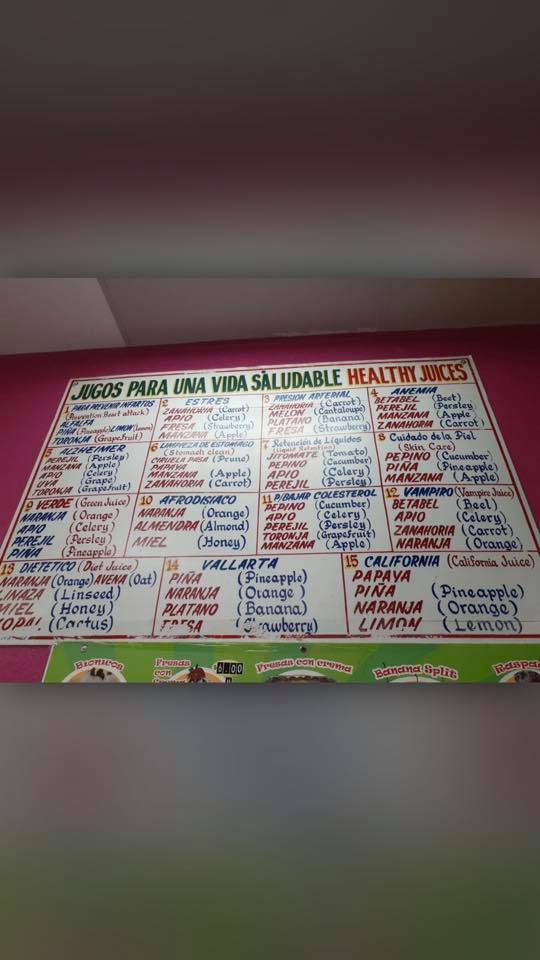 JUGOS PARA UNA VIDA SALUDABLE HEALTHY JUICES
1 PARA PREVENIR INFARTOS
(Prevention Heart attack)
ALFALFA
PIÑA (Pineapple) LIMON (Lemon)
TORONJA (Grapefruit)
2 ESTRES
ZANAHORIA (Carrot)
APIO (Celery)
FRESA (Strawberry)
MANZANA (Apple)
3 PRESION ARTERIAL
ZANAHORIA (Carrot)
MELON (Cantaloupe)
PLATANO (Banana)
FRESA (Strawberry)
4 ANEMIA
BETABEL (Beet)
PEREJIL (Persley)
MANZANA (Apple)
ZANAHORIA (Carrot)
5 ALZHEIMER
PEREJIL (Persley)
MANZANA (Apple)
APIO (Celery)
UVA (Grape)
TORONJA (Grapefruit)
6 LIMPIEZA DE ESTOMAGO
(Stomach clean)
CIRUELA PASA (Prune)
PAPAYA
MANZANA (Apple)
ZANAHORIA (Carrot)
7 Retención de Líquidos
(Liquid Retention)
JITOMATE (Tomato)
PEPINO (Cucumber)
APIO (Celery)
PEREJIL (Persley)
8 Cuidado de la Piel
(Skin Care)
PEPINO (Cucumber)
PIÑA (Pineapple)
MANZANA (Apple)
9 VERDE (Green Juice)
NARANJA (Orange)
APIO (Celery)
PEREJIL (Persley)
PIÑA (Pineapple)
10 AFRODISIACO
NARANJA (Orange)
ALMENDRA (Almond)
MIEL (Honey)
11 P/BAJAR COLESTEROL
PEPINO (Cucumber)
APIO (Celery)
PEREJIL (Persley)
TORONJA (Grapefruit)
MANZANA (Apple)
12 VAMPIRO (Vampire Juice)
BETABEL (Beel)
APIO (Celery)
ZANAHORIA (Carrot)
NARANJA (Orange)
13 DIETETICO (Diet Juice)
NARANJA (Orange) AVENA (Oat)
LINAZA (Linseed)
MIEL (Honey)
NOPAL (Cactus)
14 VALLARTA
PIÑA (Pineapple)
NARANJA (Orange)
PLATANO (Banana)
FRESA (Strawberry)
15 CALIFORNIA (California Juice)
PAPAYA
PIÑA (Pineapple)
NARANJA (Orange)
LIMON (Lemon)
Bionicos
Fresas con Crema
$6.00
Fresas con crema
Banana Split
Raspa